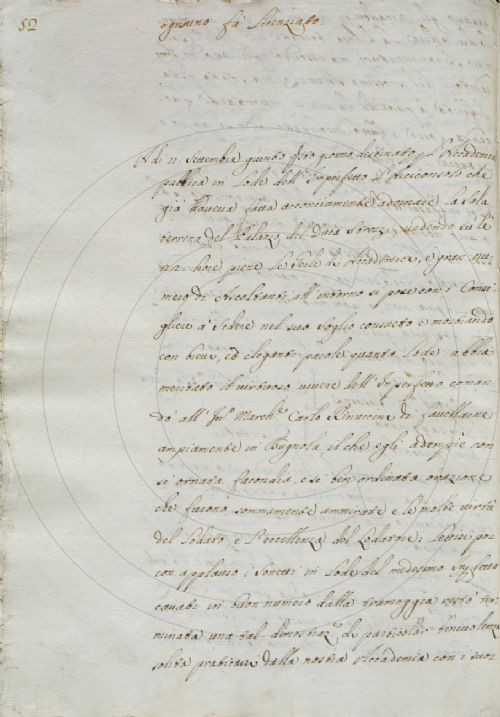 52
ognuno fù licenziato.
A di 11. Settembre giunto il giorno destinato p. l'Accademia
publica in lode dell' Imperfetto l'Arciconsolo che
già haveva fatta acconciamente adornare la Sala
terrena del Palazo del Duca Strozi, vedendo su le
hore piene le sedie di Accademici, e gran nu¬
mero di Ascoltanti all' intorno si pose con i Consi¬
glieri à Sedere nel suo Soglio consueto e mostrando
con brevi, ed eleganti parole quanta lode abbia
meritato il virtuoso vivere dell' Imperfetto coman¬
dò all' March.e Carlo Rinuccini di favellarne
ampiamente in Bugnola il che egli adempiè con
sì ornata facondia, e sì ben ordinata orazione
che furono sommamente ammirate e le molte virtù
del Lodato e l'eccellenza del Lodatore; letti poi
con applauso i Sonetti in lode del medesimo Imperfetto
cavati in buon numero dalla tramoggia restò ter¬
minata una tal dimostraz.e di particolar benivolenza
solita praticarsi dalla nostra Accademia con i suoi